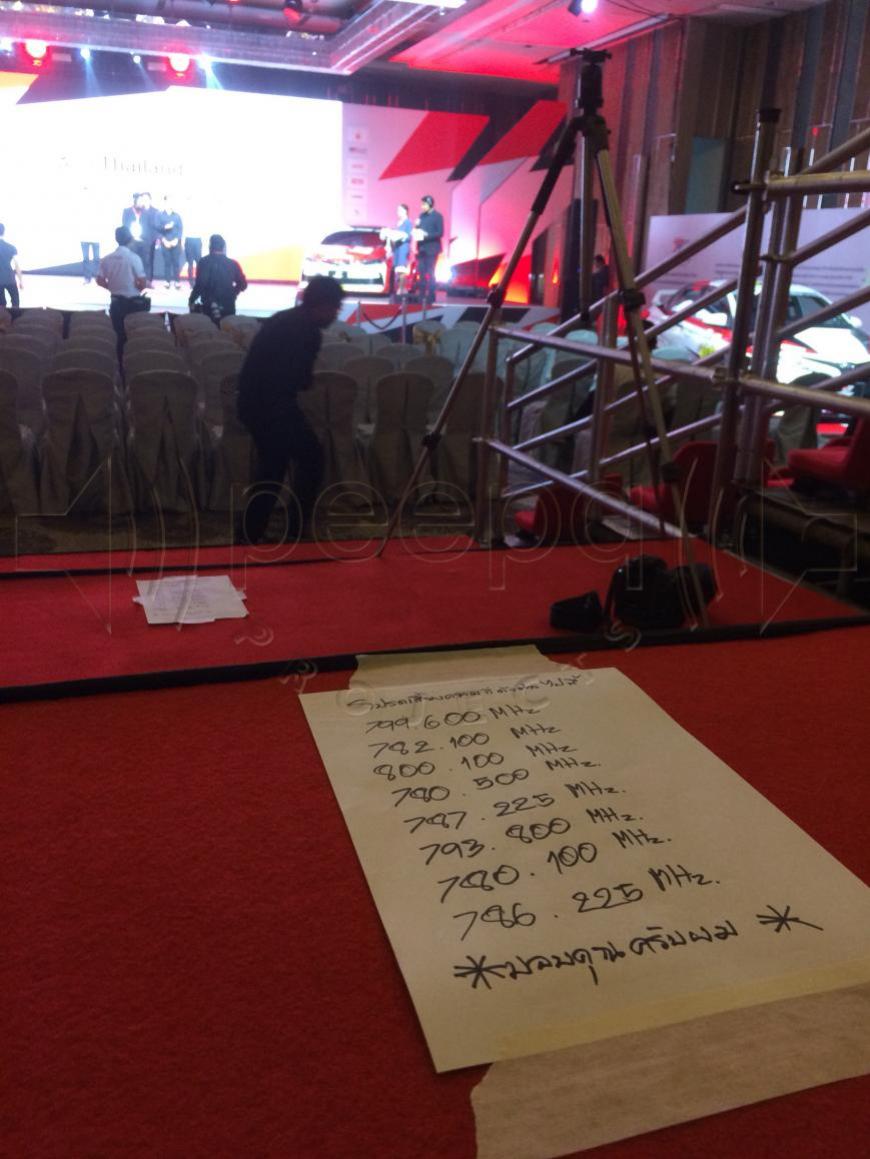 Thailand
peepa
799.600 MHz
782.100 MHz
800.100 MHz
780.500 MHz.
787.225 MHz.
793.800 MHz.
780.100 MHz.
786.225 MHz.
*ขอบคุณครับผม *